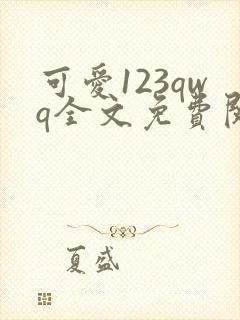 可愛123qw
q全文免費
夏盛